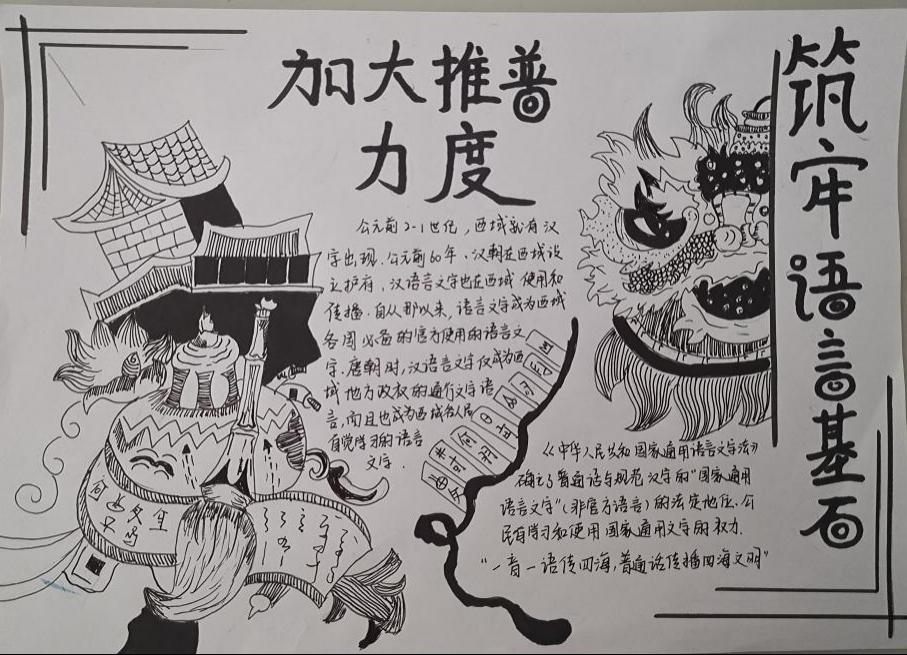 加大推普
力度
筑牢语言基石
公元前2-1世纪，西域就有汉
字出现．公元前60年．汉朝在西域设
立护府．汉语言文字也在西域使用和
传播．自从那以来，语言文字成为西域
各国必备的官方使用的语言文
字．唐朝时，汉语言文字仅成为西
域地方政权的通行文字语
言，而且也成为西域各人民
自觉学习的语言
文字．
《中华人民共和国家通用语言文字法》
确立了普通话与规范汉字的"国家通用
语言文字"（非官方语言）的法定地位．公
民有学习和使用国家通用文字的权力．
"一音一语传四海，普通话传播四海文明"